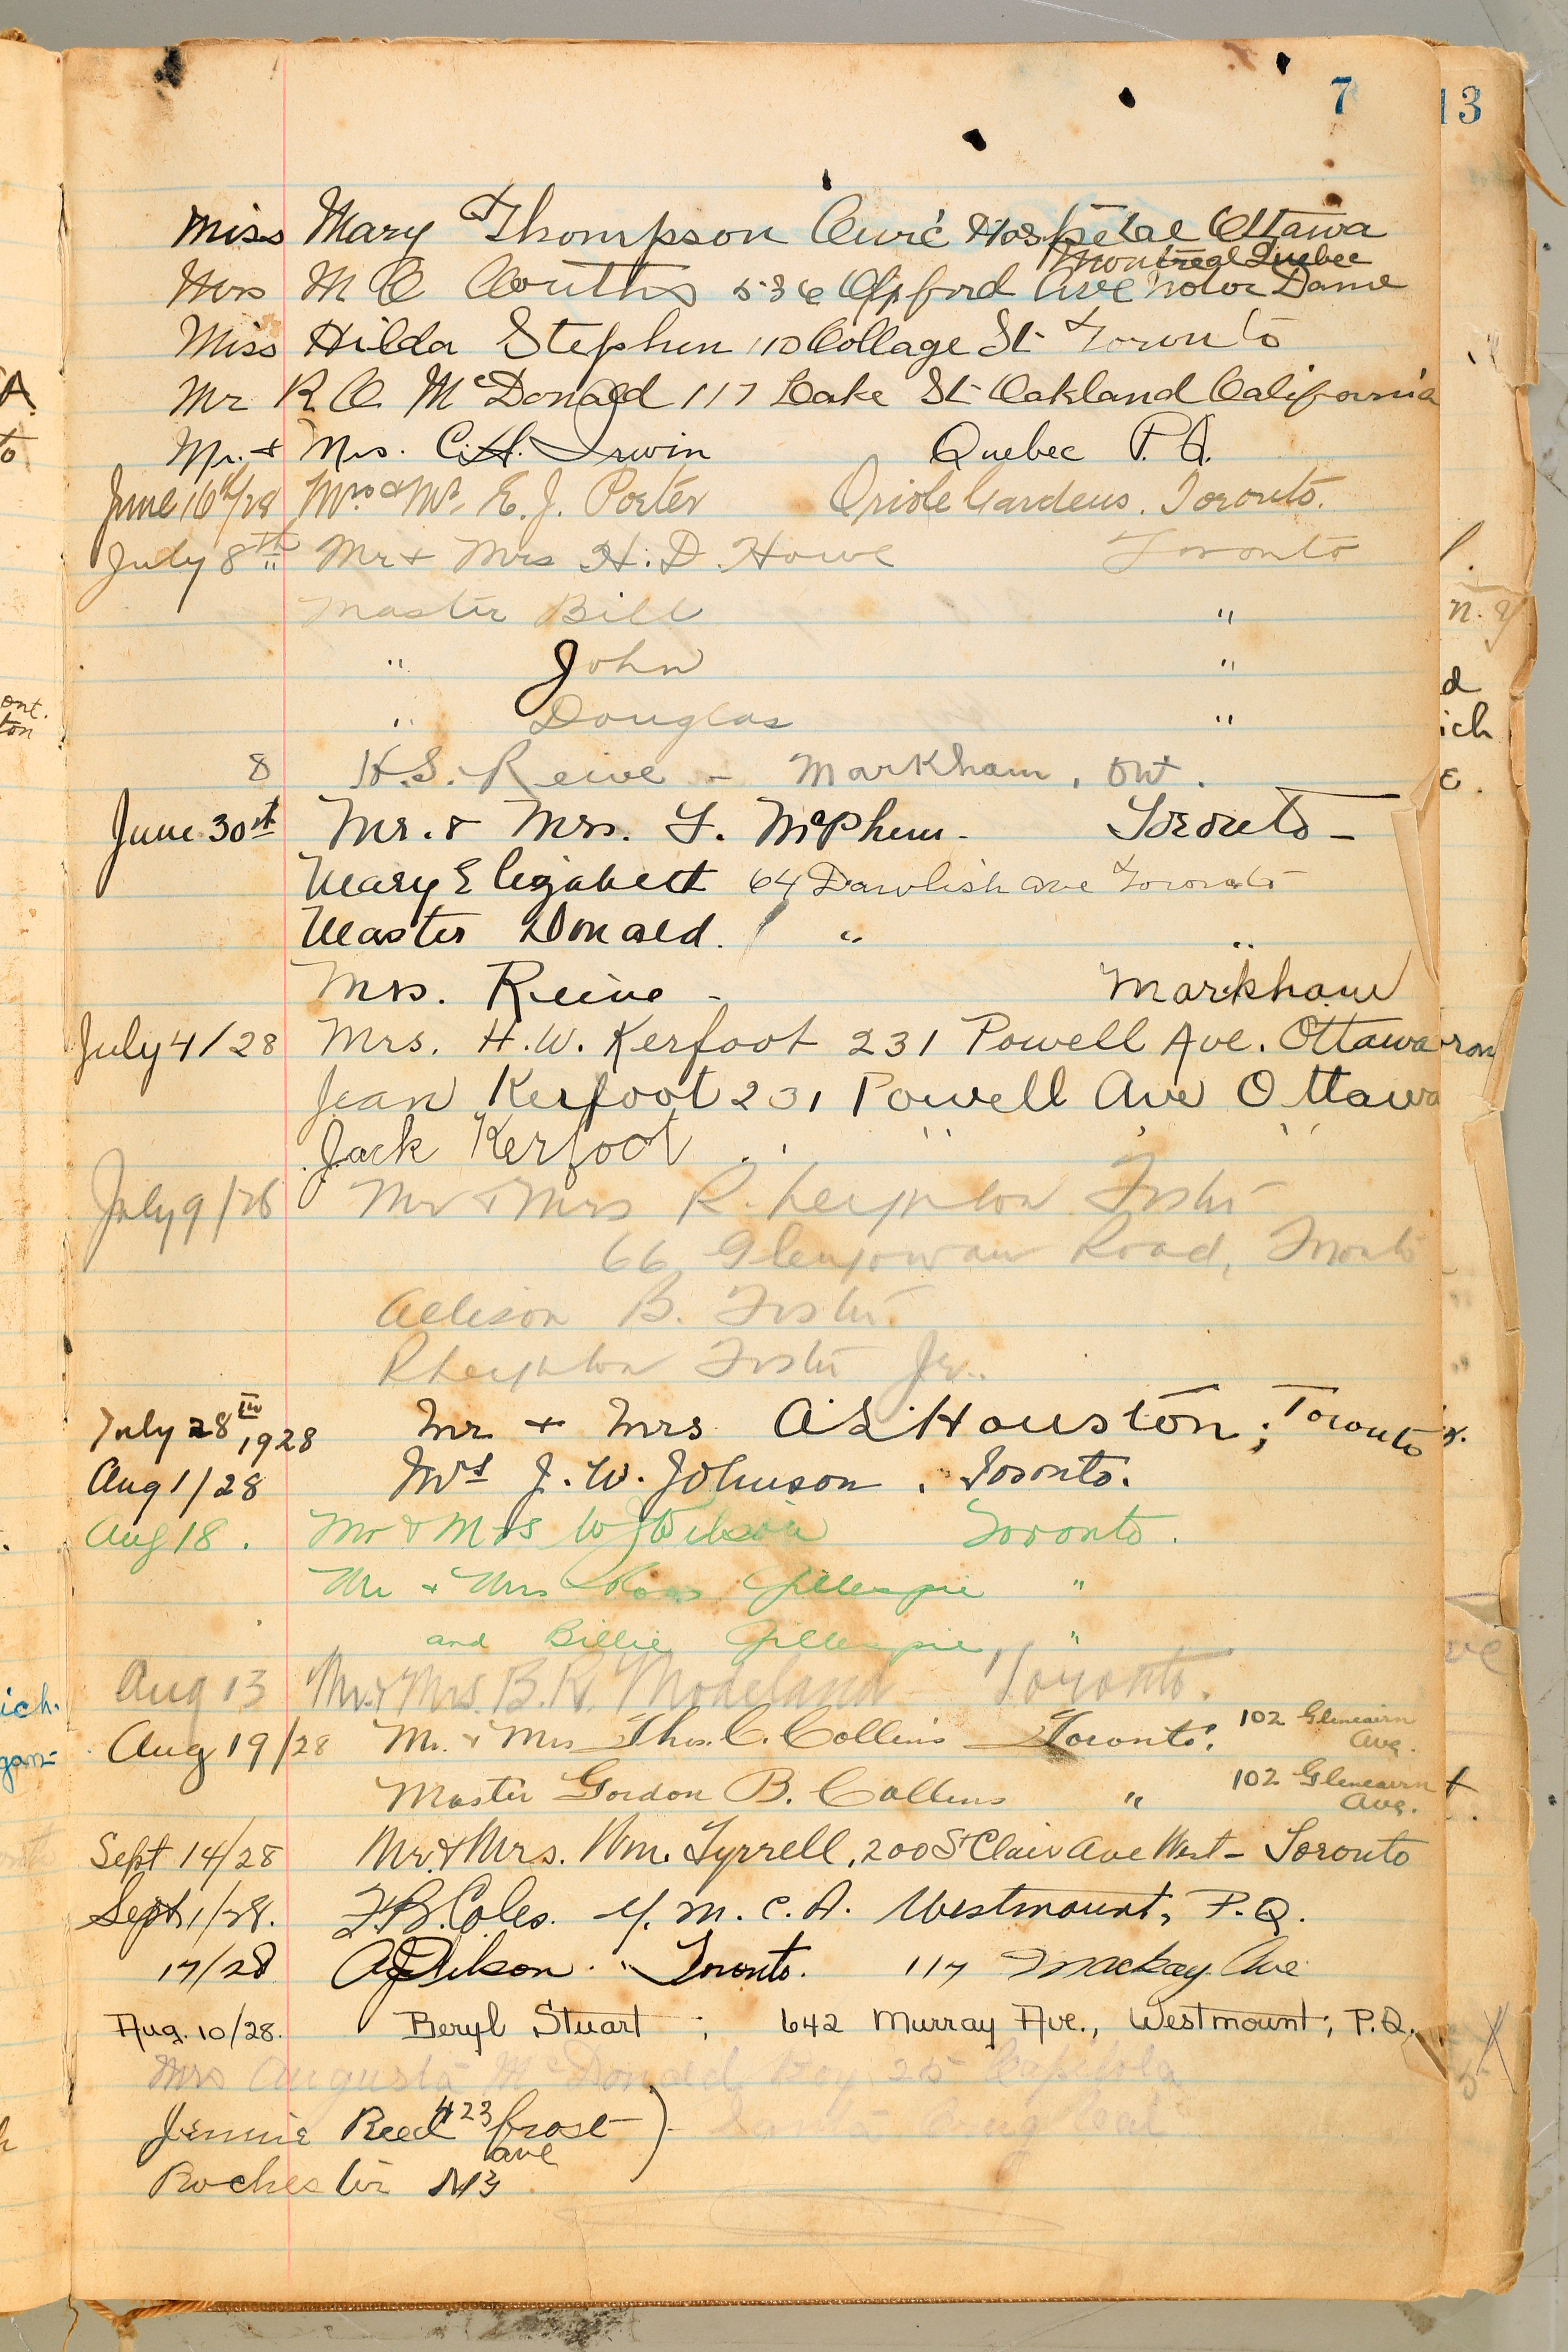 7
13
Miss Mary Thompson Civic Hospital Ottawa
Montreal Quebec
Mrs M C Couttis 536 Oxford Ave Notor Dame
Miss Hilda Stephen 110 Collage St Toronto
Mr R C. McDonald 117 Lake St Oakland California
Mr. + Mrs. C.H. Irwin Quebec P.Q.
June 16th/28 Mrs & Mr. E. J. Porter Oriole Gardens, Toronto.
July 8th Mr + Mrs H. D. Howe Toronto
Master Bill "
" John "
" Douglas "
8 H.S. Reive - Markham, Ont.
June 30st Mr. & Mrs. F. McPhem - Toronto -
Mary Elizabett 64 Dawlish ave Toronto
Master Donald. " "
Mrs. Reive - Markham
July 4/28 Mrs. H.W. Kerfoot 231 Powell Ave. Ottawa
Jean Kerfoot 231 Powell Ave Ottawa
Jack Kerfoot " " " "
July 9/28 Mr & Mrs R. Foster
66 Glengowan Road, Toronto
Allison B. Foster
Foster Jr.
July 28th 1928 Mr + Mrs A L Houston; Toronto
Aug 1/28 Mrs J. W. Johnson. Toronto.
Aug 18. Mr & Mrs W J Wilson Toronto.
Mr & Mrs Ross Gillespie "
and Billie Gillespie, "
Aug 13 Mr. & Mrs. B. R. Modeland Toronto.
Aug 19/28 Mr. & Mrs Thos. C. Collins Toronto. 102 Glencairn Ave.
Master Gordon B. Collins " 102 Glencairn Ave.
Sept 14/28 Mr. & Mrs. Wm. Tyrrell, 200 St Clair Ave West - Toronto
Sept 1/28. F.B. Coles. Y.M.C.A. Westmount, P.Q.
17/28 Toronto. 117 Mackay Ave
Aug. 10/28. Beryl Stuart ; 642 Murray Ave., Westmount, P.Q.
Mrs Augusta McDonald Box 25 Capitola
Jennie Reed 423 frost )
ave
Rochester NY